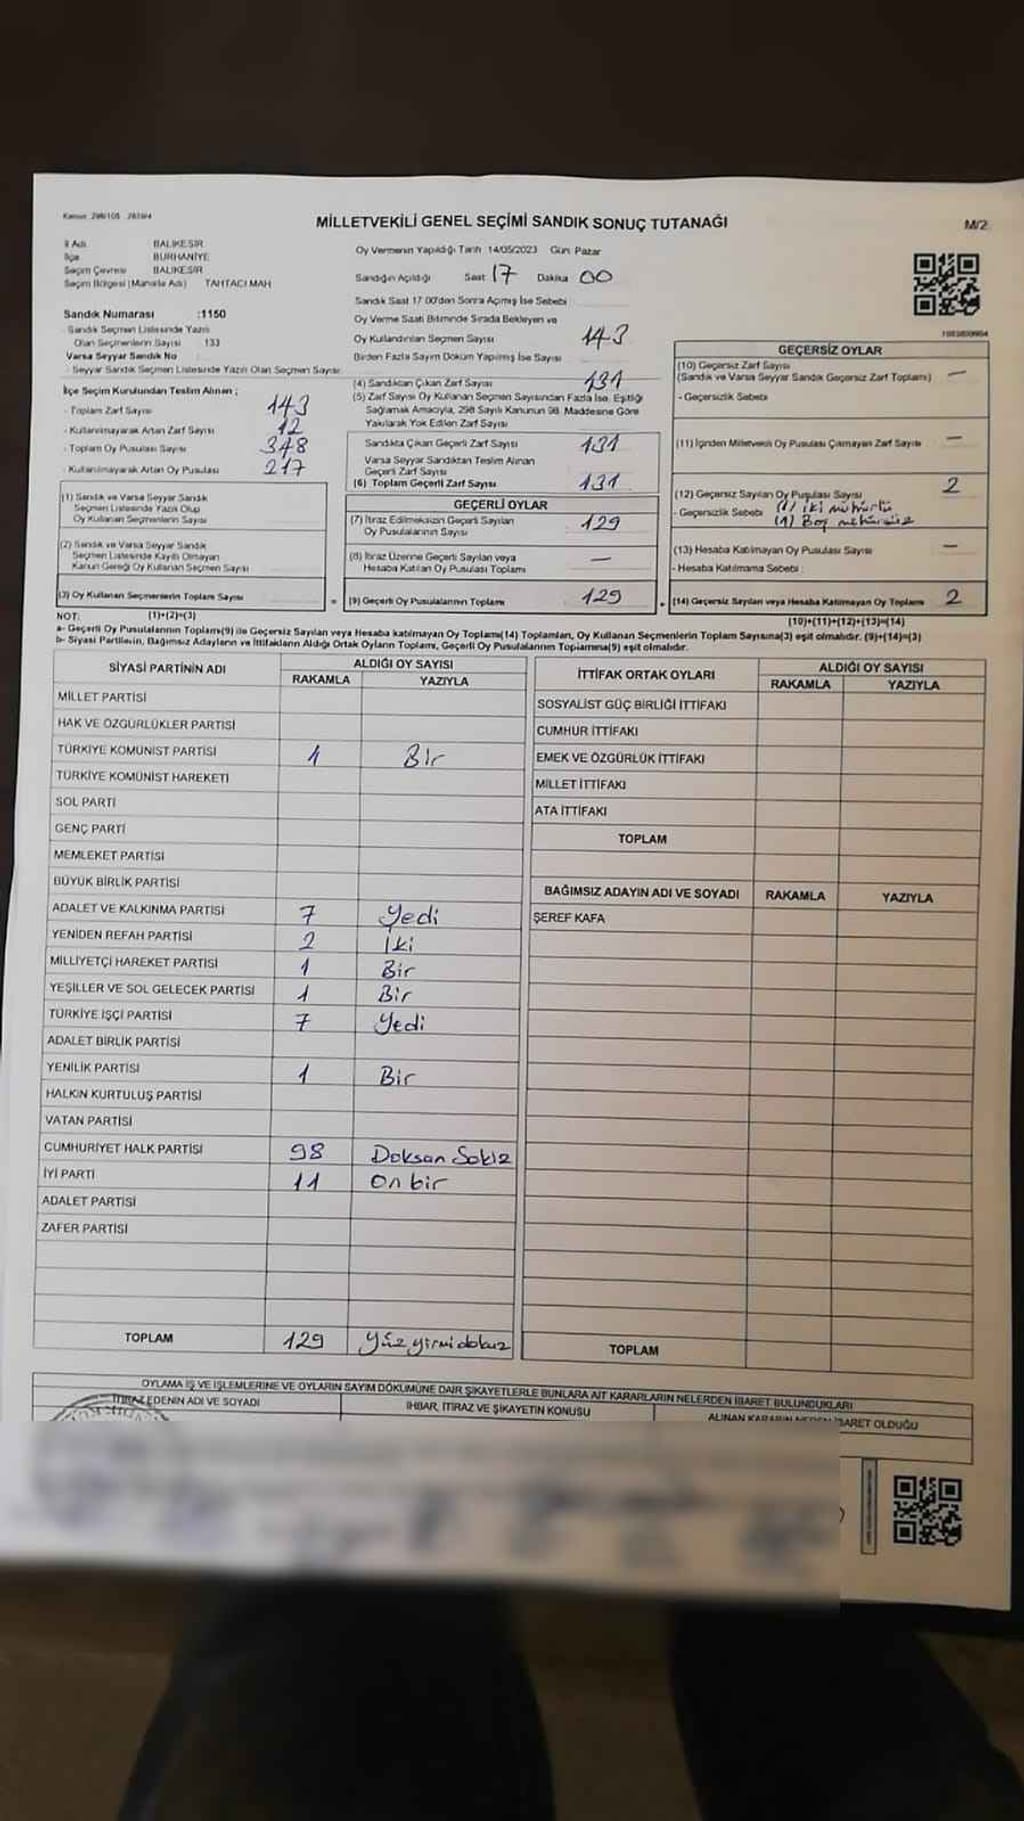 Kanun: 298/105 2839/4
MİLLETVEKİLİ GENEL SEÇİMİ SANDIK SONUÇ TUTANAĞI
M/2
İl Adı BALIKESİR
İlçe BURHANİYE
Seçim Çevresi BALIKESİR
Seçim Bölgesi (Mahalle Adı) TAHTACI MAH
Oy Vermenin Yapıldığı Tarih 14/05/2023 Gün: Pazar
Sandığın Açıldığı Saat 17 Dakika 00
Sandık Saat 17 00'den Sonra Açımış İse Sebebi
Oy Verme Saati Bitiminde Sırada Bekleyen ve
Oy Kullandırılan Seçmen Sayısı 143
Birden Fazla Sayım Döküm Yapılmış İse Sayısı
Sandık Numarası :1150
Sandık Seçmen Listesinde Yazılı
Olan Seçmenlerin Sayısı 133
Varsa Seyyar Sandık No
- Seyyar Sandık Seçmen Listesinde Yazılı Olan Seçmen Sayısı
İlçe Seçim Kurulundan Teslim Alınan ;
- Toplam Zarf Sayısı 143
- Kullanılmayarak Artan Zarf Sayısı 12
- Toplam Oy Pusulası Sayısı 348
- Kullanılmayarak Artan Oy Pusulası 217
(1) Sandık ve Varsa Seyyar Sandık
Seçmen Listesinde Yazılı Olup
Oy Kullanan Seçmenlerin Sayısı
(2) Sandık ve Varsa Seyyar Sandık
Seçmen Listesinde Kayıtlı Olmayan
Kanun Gereği Oy Kullanan Seçmen Sayısı
(3) Oy Kullanan Seçmenlerin Toplam Sayısı
(1)+(2)=(3)
(4) Sandıktan Çıkan Zarf Sayısı 131
(5) Zarf Sayısı Oy Kullanan Seçmen Sayısından Fazla İse, Eşitliği
Sağlamak Amacıyla, 298 Sayılı Kanunun 98. Maddesine Göre
Yakılarak Yok Edilen Zarf Sayısı
Sandıkta Çıkan Geçerli Zarf Sayısı 131
Varsa Seyyar Sandıktan Teslim Alınan
Geçerli Zarf Sayısı
(6) Toplam Geçerli Zarf Sayısı 131
GEÇERLİ OYLAR
(7) İtiraz Edilmeksizin Geçerli Sayılan
Oy Pusulalarının Sayısı 129
(8) İtiraz Üzerine Geçerli Sayılan veya
Hesaba Katılan Oy Pusulası Toplamı —
= (9) Geçerli Oy Pusulalarının Toplamı 129
GEÇERSİZ OYLAR
(10) Geçersiz Zarf Sayısı —
(Sandık ve Varsa Seyyar Sandık Geçersiz Zarf Toplamı)
- Geçersizlik Sebebi
(11) İçinden Milletvekili Oy Pusulası Çıkmayan Zarf Sayısı —
(12) Geçersiz Sayılan Oy Pusulası Sayısı 2
- Geçersizlik Sebebi (1) iki mühürlü
(1) Boş mühürsüz
(13) Hesaba Katılmayan Oy Pusulası Sayısı —
- Hesaba Katılmama Sebebi :
+ (14) Geçersiz Sayılan veya Hesaba Katılmayan Oy Toplamı 2
(10)+(11)+(12)+(13)=(14)
NOT:
a- Geçerli Oy Pusulalarının Toplamı(9) ile Geçersiz Sayılan veya Hesaba katılmayan Oy Toplamı(14) Toplamları, Oy Kullanan Seçmenlerin Toplam Sayısına(3) eşit olmalıdır. (9)+(14)=(3)
b- Siyasi Partilerin, Bağımsız Adayların ve İttifakların Aldığı Ortak Oyların Toplamı, Geçerli Oy Pusulalarının Toplamına(9) eşit olmalıdır.
SİYASİ PARTİNİN ADI ALDIĞI OY SAYISI
RAKAMLA YAZIYLA
MİLLET PARTİSİ
HAK VE ÖZGÜRLÜKLER PARTİSİ
TÜRKİYE KOMÜNİST PARTİSİ 1 Bir
TÜRKİYE KOMÜNİST HAREKETİ
SOL PARTİ
GENÇ PARTİ
MEMLEKET PARTİSİ
BÜYÜK BİRLİK PARTİSİ
ADALET VE KALKINMA PARTİSİ 7 Yedi
YENİDEN REFAH PARTİSİ 2 İki
MİLLİYETÇİ HAREKET PARTİSİ 1 Bir
YEŞİLLER VE SOL GELECEK PARTİSİ 1 Bir
TÜRKİYE İŞÇİ PARTİSİ 7 Yedi
ADALET BİRLİK PARTİSİ
YENİLİK PARTİSİ 1 Bir
HALKIN KURTULUŞ PARTİSİ
VATAN PARTİSİ
CUMHURİYET HALK PARTİSİ 98 Doksan Sekiz
İYİ PARTİ 11 On bir
ADALET PARTİSİ
ZAFER PARTİSİ
TOPLAM 129 Yüz yirmi dokuz
İTTİFAK ORTAK OYLARI ALDIĞI OY SAYISI
RAKAMLA YAZIYLA
SOSYALİST GÜÇ BİRLİĞİ İTTİFAKI
CUMHUR İTTİFAKI
EMEK VE ÖZGÜRLÜK İTTİFAKI
MİLLET İTTİFAKI
ATA İTTİFAKI
TOPLAM
BAĞIMSIZ ADAYIN ADI VE SOYADI RAKAMLA YAZIYLA
ŞEREF KAFA
TOPLAM
OYLAMA İŞ VE İŞLEMLERİNE VE OYLARIN SAYIM DÖKÜMÜNE DAİR ŞİKAYETLERLE BUNLARA AİT KARARLARIN NELERDEN İBARET BULUNDUKLARI
İTİRAZ EDENİN ADI VE SOYADI
İHBAR, İTİRAZ VE ŞİKAYETİN KONUSU
ALINAN KARARIN NEDEN İBARET OLDUĞU